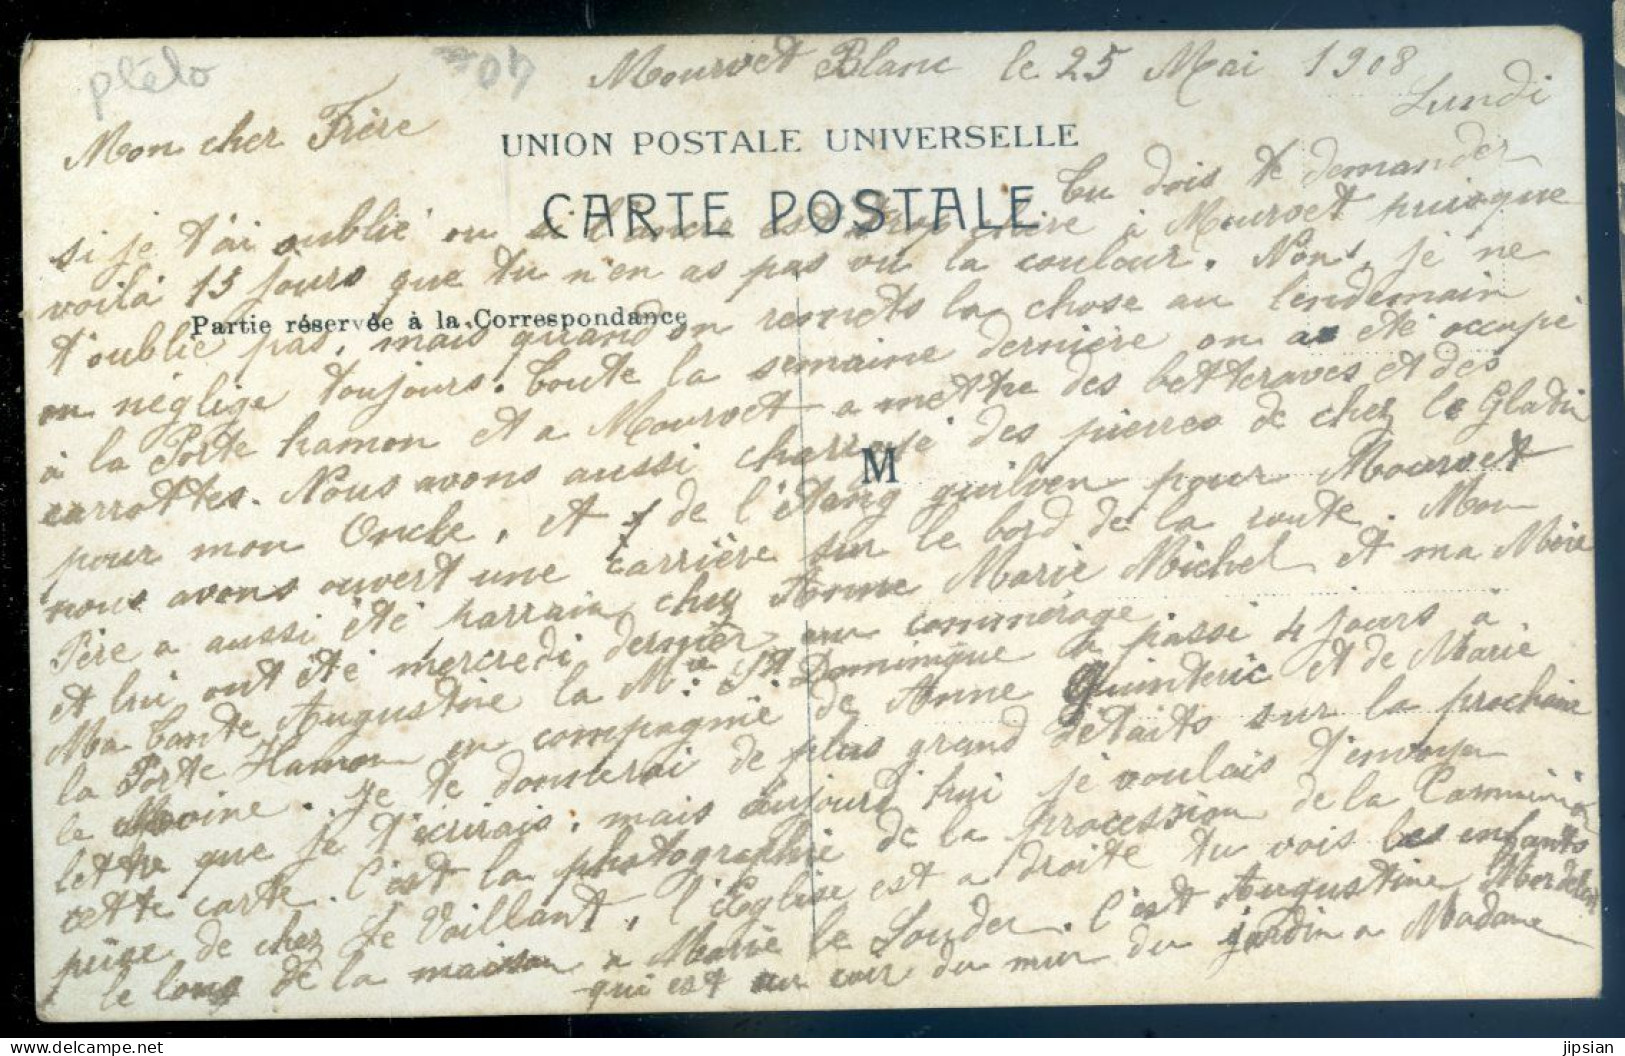 plélo
Mourvet Blanc le 25 Mai 1908
Lundi
Mon cher Frère
UNION POSTALE UNIVERSELLE
CARTE POSTALE
Partie réservée à la Correspondance
M
tu dois te demander
si je t'ai oublié ou si l'ancre est trop chère à Mourvet puisque
voilà 15 jours que tu n'en as pas vu la couleur. Non, je ne
t'oublie pas, mais quand on remets la chose au lendemain
on néglige toujours. Toute la semaine dernière on a été occupé
à la Porte hamon et a Mourvet a mettre des betteraves et des
carrottes. Nous avons aussi charroyé des pierres de chez le Glatin
pour mon Oncle, et de l'étang quilven pour Mourvet
nous avons ouvert une carrière sur le bord de la route. Mon
Père a aussi été parrain chez Anne Marie Michel et ma Mère
et lui ont été mercredi dernier au commérage.
Ma tante Augustine la Mre St Dominique a passé 4 jours à
la Porte Hamon en compagnie de Anne Quinteric et de Marie
le Moine. Je te donnerai de plus grand détails sur la prochaine
lettre que je t'écrirais, mais aujourd'hui je voulais t'envoyer
cette carte. C'est la photographie de la procession de la Communion
prise de chez Le Vaillant, l'Eglise est a droite tu vois les enfants
le long de la maison a Marie le Souder. C'est Augustine
qui est au coin du mur du jardin a Madame
jipsian